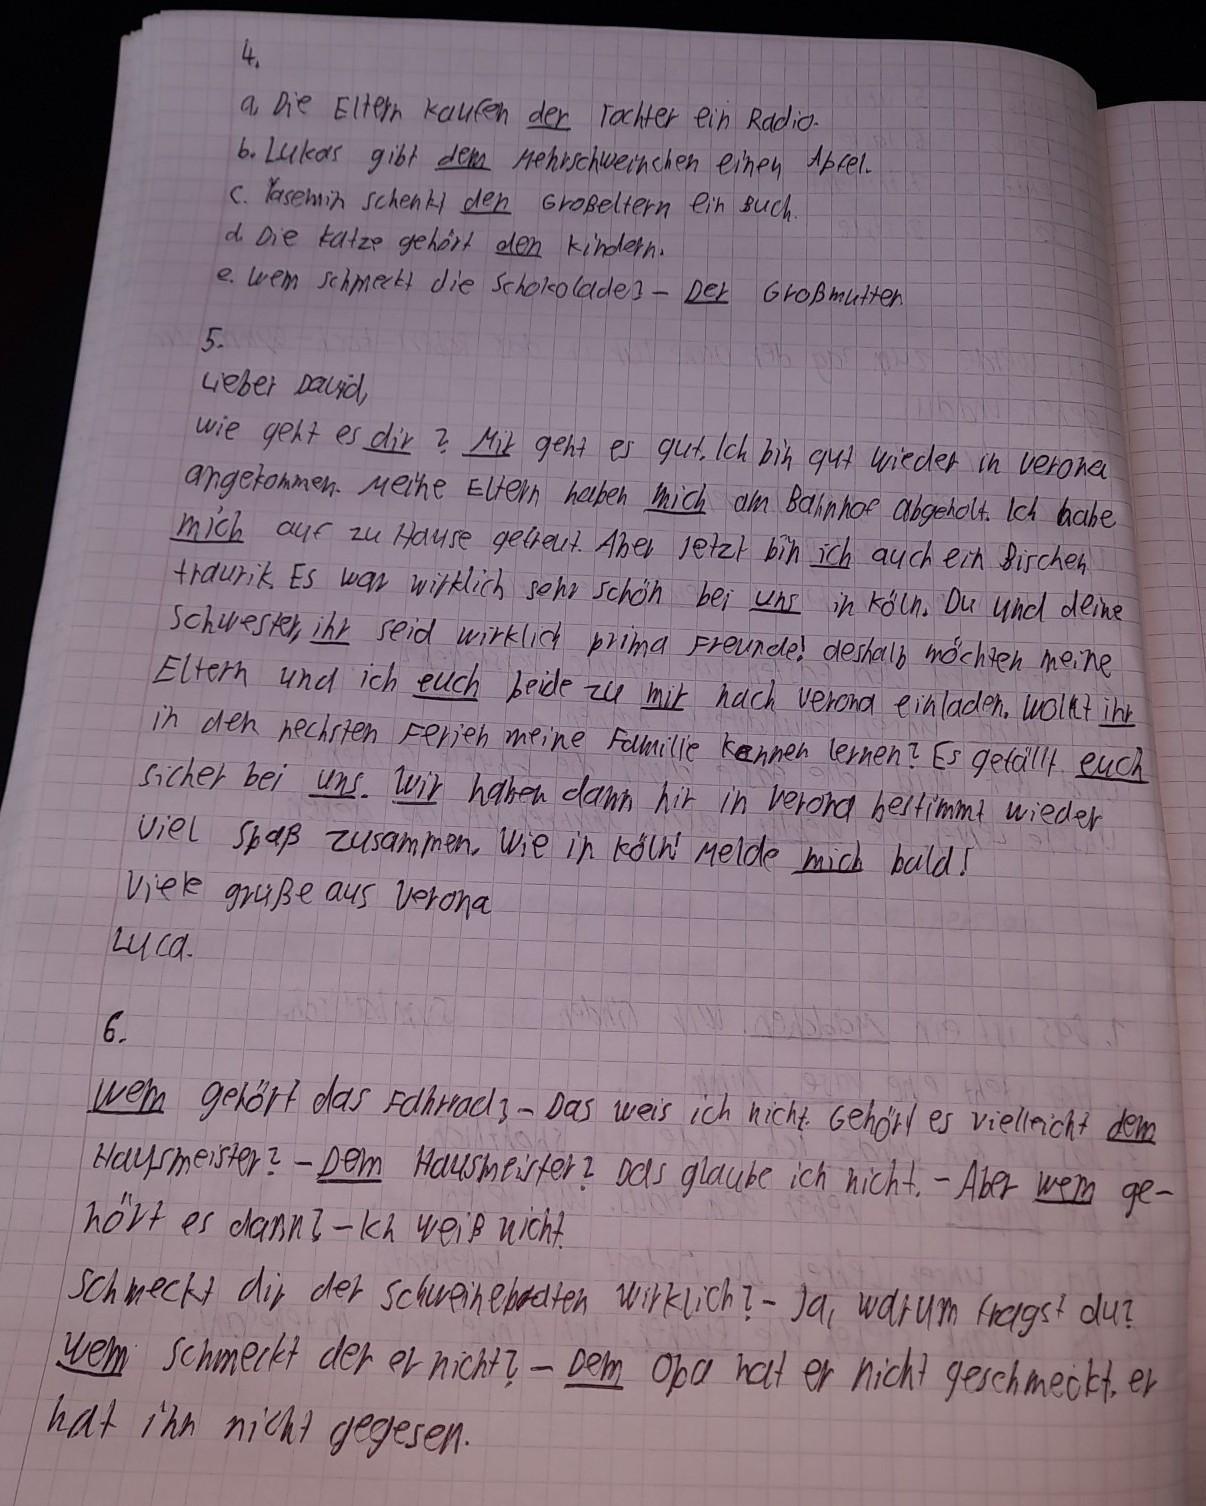 4.
a. Die Eltern kaufen der Tochter ein Radio.
b. Lukas gibt dem Mehrschweinchen einen Apfel.
c. Yasemin schenkt den Großeltern ein Buch.
d. Die Katze gehört den Kindern.
e. Wem schmeckt die Schokolade? – Der Großmutter
5.
Lieber David,
wie geht es dir? Mir geht es gut. Ich bin gut wieder in Verona
angekommen. Meine Eltern haben mich am Bahnhof abgeholt. Ich habe
mich auf zu Hause gefreut. Aber jetzt bin ich auch ein Bischen
traurik. Es war wirklich sehr schön bei uns in Köln. Du und deine
Schwester, ihr seid wirklich prima Freunde! deshalb möchten meine
Eltern und ich euch beide zu mir nach Verona einladen. Wollt ihr
in den nechsten Ferien meine Familie kennen lernen? Es gefällt euch
sicher bei uns. Wir haben dann hir in Verona bestimmt wieder
viel Spaß zusammen. Wie in Köln! Melde mich bald!
Viele grüße aus Verona
Luca.
6.
Wem gehört das Fahrrad? – Das weis ich nicht. Gehört es vielleicht dem
Hausmeister? – Dem Hausmeister? Das glaube ich nicht. – Aber wem ge-
hört es dann? – Ich weiß nicht.
Schmeckt dir der Schweinebraten wirklich? – Ja, warum fragst du?
Wem schmeckt der er nicht? – Dem Opa hat er nicht geschmeckt. er
hat ihn nicht gegesen.